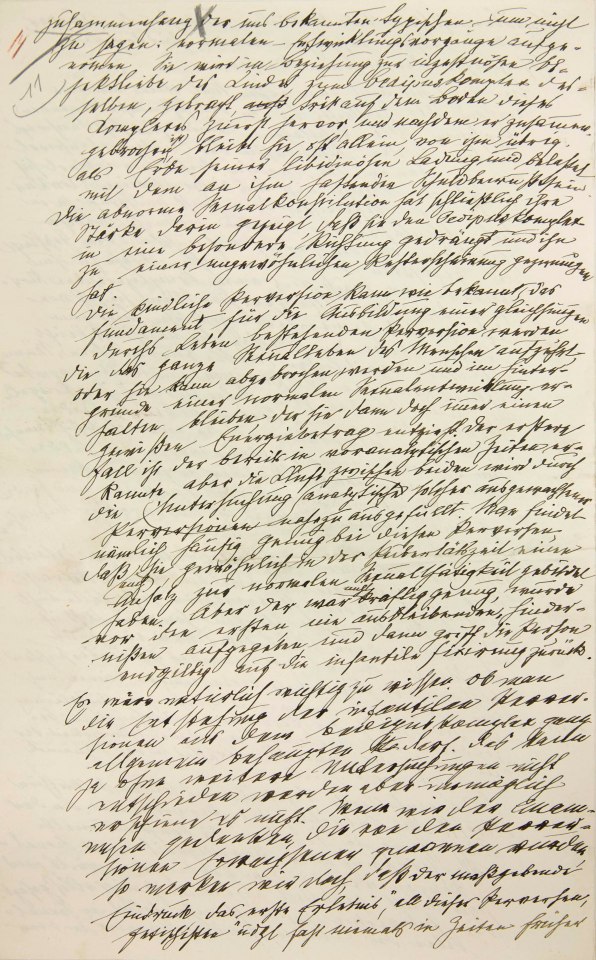 11
Zusammenhang der uns bekannten typischen – um nicht
11
zu sagen: normalen – Entwicklungsvorgänge aufge-
nomen. Sie wird in Beziehung zur inzestuösen Ob-
jektliebe des Kindes zum Oedipuskomplex des-
selben, gebracht tritt auf dem Boden dieses
Komplexes zuerst hervor und nachdem er zusamen-
gebrochen ist bleibt sie, oft allein, von ihm übrig
als Erbe seiner libidinösen Ladung und belastet
mit dem an ihm haftenden Schuldbewußtsein
Die abnorme Sexualkonstitution hat schließlich ihre
Stärke darin gezeigt, daß sie den Oedipuskomplex
in eine besondere Richtung gedrängt und ihn
zu einer ungewöhnlichen Resterscheinung gezwungen
hat.
Die kindliche Perversion kann wie bekannt, das
Fundament für die Ausbildung einer gleichsinnigen
durchs Leben bestehenden Perversion werden
die das ganze Sexualleben des Menschen aufzehrt
oder sie kann abgebrochen werden und im Hinter-
grunde einer normalen Sexualentwicklung er-
halten bleiben der sie dann doch imer einen
gewißen Energiebetrag entzieht. Der erstere
Fall ist der bereits in voranalytischen Zeiten er-
kannte aber die Kluft zwischen beiden wird durch
die Untersuchung analytische solcher ausgewachsener
Perversionen nahezu ausgefüllt. Man findet
nämlich häufig genug bei diesen Perversen,
daß sie gewöhnlich in der Pubertätszeit einen
auch
Ansatz zur normalen Sexualthätigkeit gebildet
haben. Aber der war nicht kräftig genug, wurde
vor die ersten nie ausbleibenden Hinder-
nißen aufgegeben und dann griff die Person
endgiltig auf die infantile Fixierung zurück.
Es wäre natürlich wichtig zu wissen ob man
die Entstehung der infantilen Perver-
sionen aus dem Oedipuskomplex ganz
allgemein behaupten darf. Das kann
ja ohne weitere Untersuchungen nicht
entschieden werden aber unmöglich
erschiene es nicht. Wenn wir der Anam-
nesen gedenken, die von den Perver-
sionen Erwachsener gewonnen wurden
so merken wir doch, daß der maßgebende
Eindruck das „erste Erlebnis“, all dieser Perversen,
Fetischisten udgl fast niemals in Zeiten früher